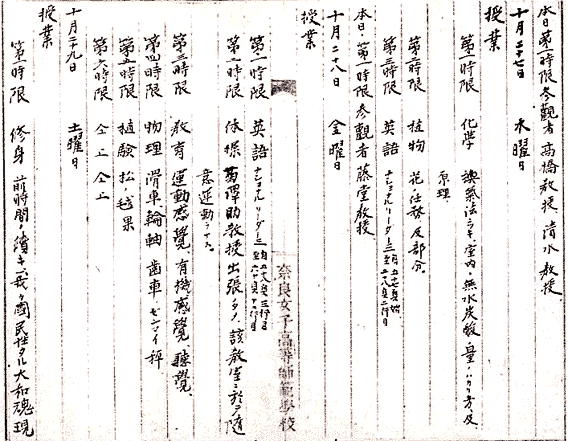 本日第一時限参觀者 高橋教授、清水教授
十月二十七日 木曜日
授業
第一時限 化学 室内ノ無水炭酸ノ量ヲハカル方及
原理
第二時限 植物 花ノ任務及部分
第三時限 英語 ナショナルリーダー三
本日第一時限参觀者 藤堂教授
十月二十八日 金曜日
授業
第一時限 英語 ナショナルリーダー三
第二時限 体操 助教授出張ノタメ、該教室ニ於テ随
意運動ヲナス。
第三時限 教育 運動感覺、有機感覺、聽覺
第四時限 物理 滑車、輪軸、歯車、ゼンマイ秤
第五時限 植験 松ノ毬果
第六時限 仝上 仝上
十月二十九日 土曜日
授業
第一時限 修身 前時間ノ續キ、我ガ國民性タル大和魂現
奈良女子高等師範學校